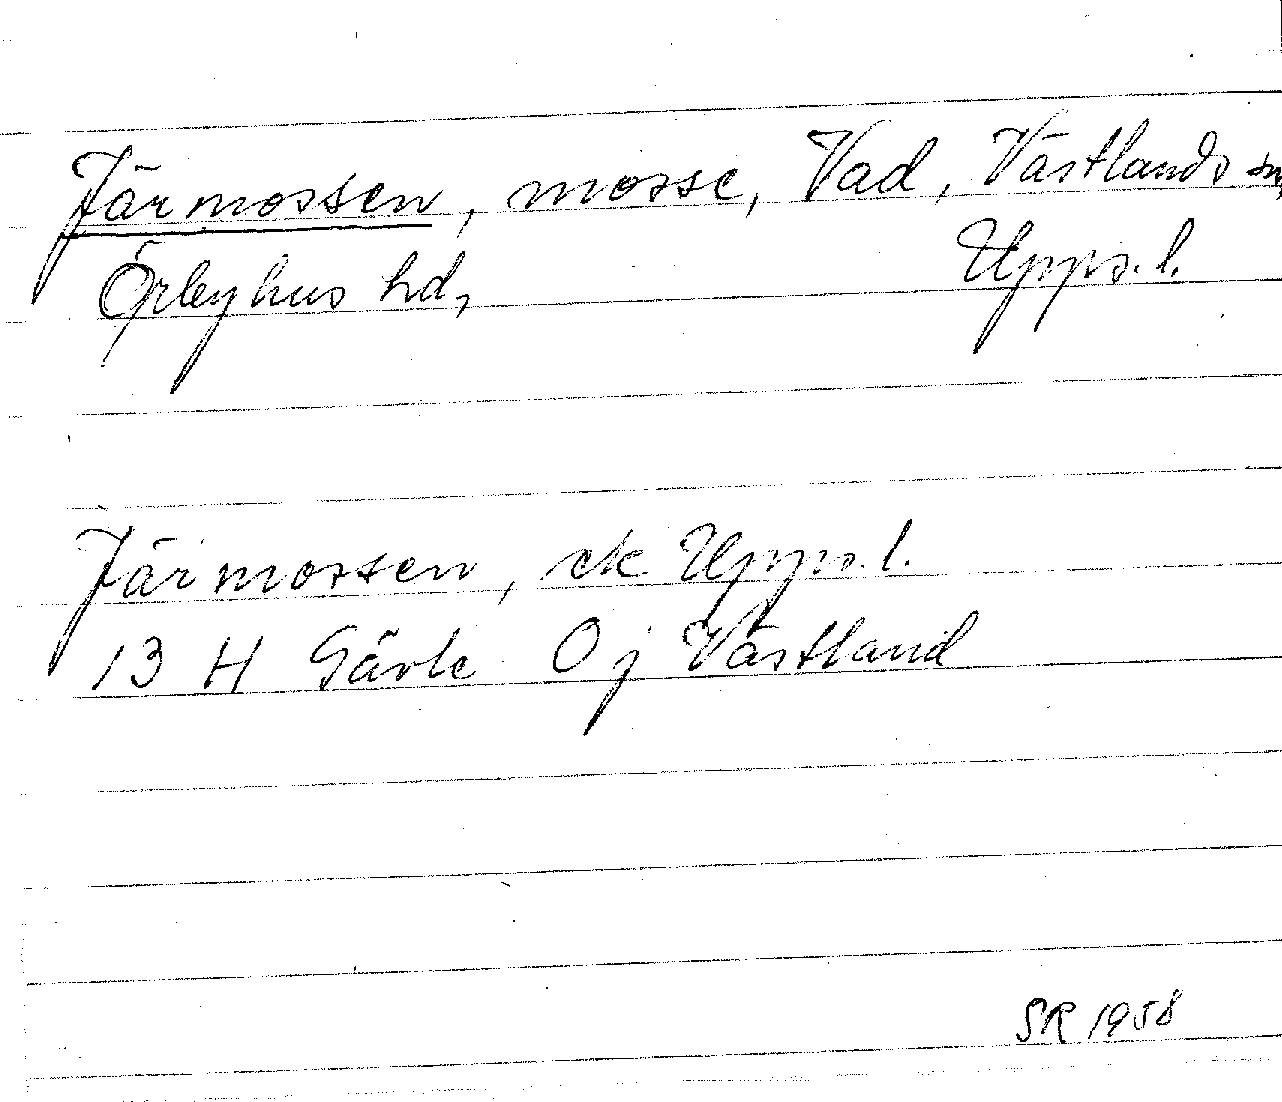 Järmossen, mosse, Vad, Västlands sn,
Örbyhus hd, Upps. l.
Järmossen, ek Upps. l.
13 H Gävle 0 j Västland
SR 1958